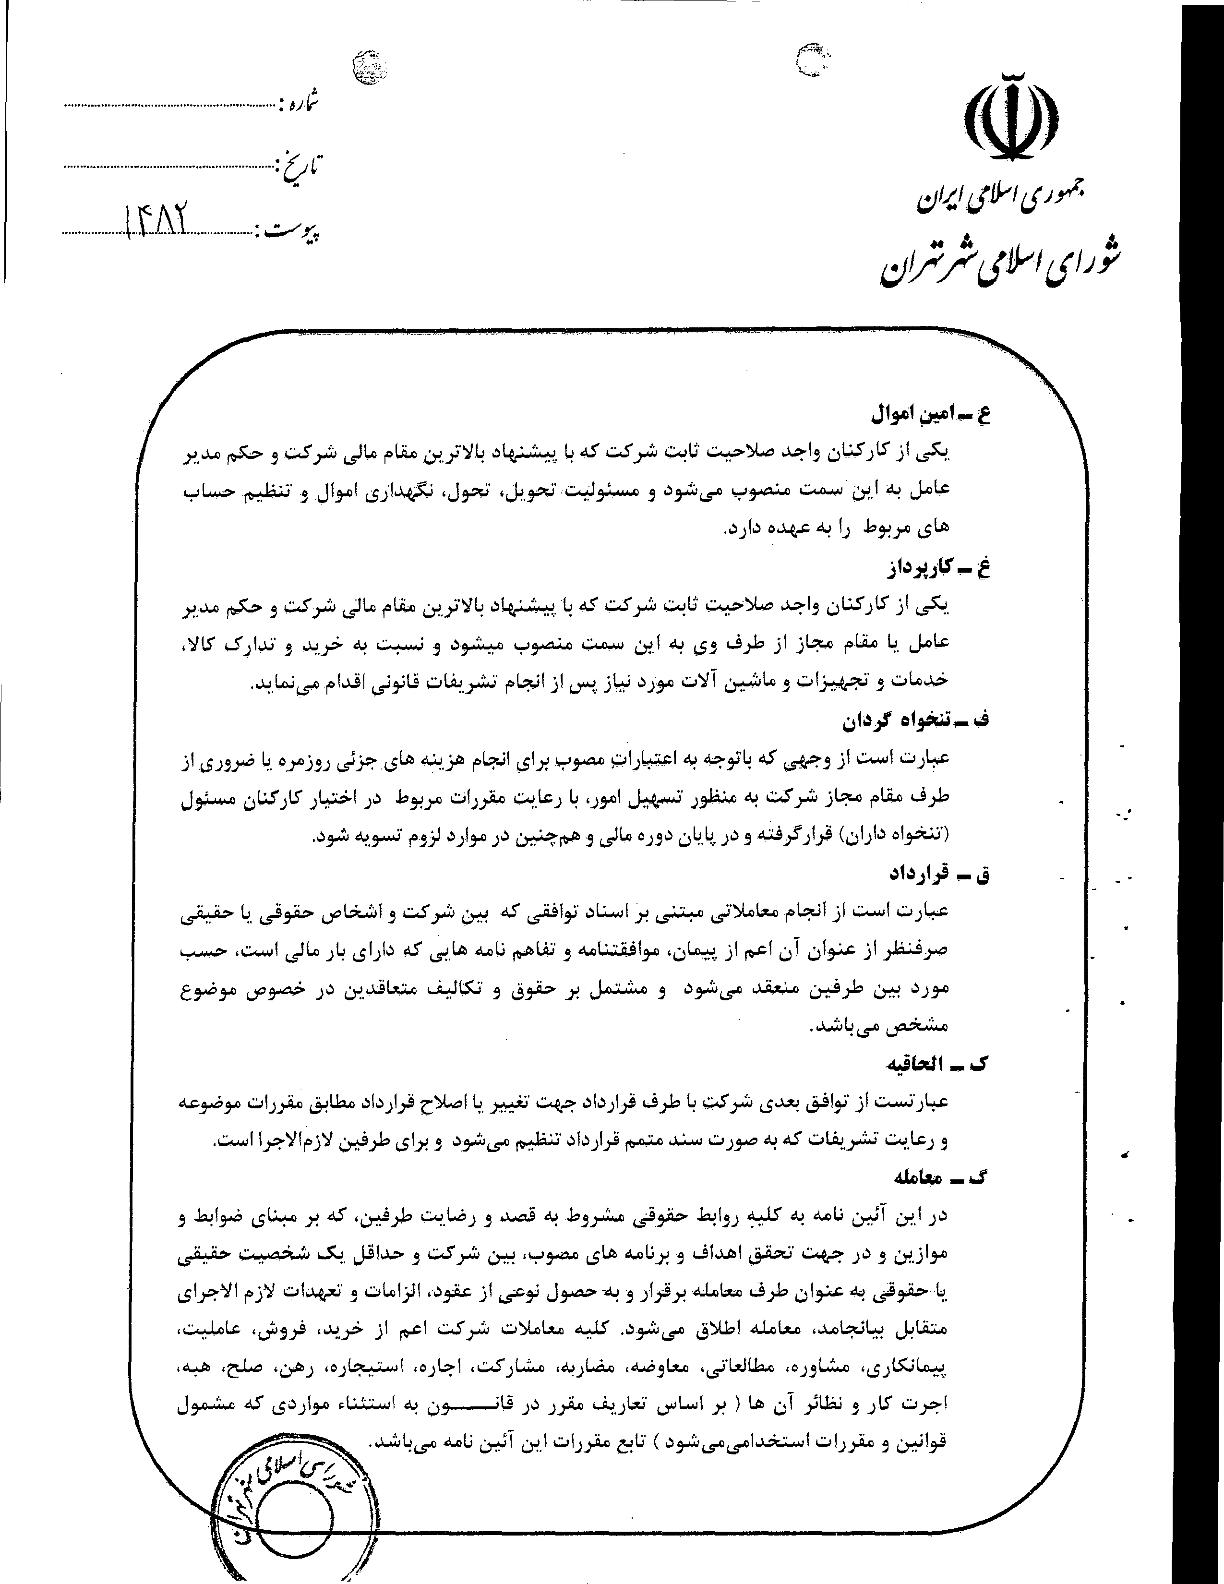 جمهوری اسلامی ایران
شورای اسلامی شهر تهران
شماره :
تاریخ :
پیوست : ۱۴۸۲
ع ـ امین اموال
یکی از کارکنان واجد صلاحیت ثابت شرکت که با پیشنهاد بالاترین مقام مالی شرکت و حکم مدیر
عامل به این سمت منصوب می‌شود و مسئولیت تحویل، تحول، نگهداری اموال و تنظیم حساب
های مربوط را به عهده دارد.
غ ـ کارپرداز
یکی از کارکنان واجد صلاحیت ثابت شرکت که با پیشنهاد بالاترین مقام مالی شرکت و حکم مدیر
عامل یا مقام مجاز از طرف وی به این سمت منصوب میشود و نسبت به خرید و تدارک کالا،
خدمات و تجهیزات و ماشین آلات مورد نیاز پس از انجام تشریفات قانونی اقدام می‌نماید.
ف ـ تنخواه گردان
عبارت است از وجهی که باتوجه به اعتبارات مصوب برای انجام هزینه های جزئی روزمره یا ضروری از
طرف مقام مجاز شرکت به منظور تسهیل امور، با رعایت مقررات مربوط در اختیار کارکنان مسئول
(تنخواه داران) قرارگرفته و در پایان دوره مالی و هم‌چنین در موارد لزوم تسویه شود.
ق ـ قرارداد
عبارت است از انجام معاملاتی مبتنی بر اسناد توافقی که بین شرکت و اشخاص حقوقی یا حقیقی
صرفنظر از عنوان آن اعم از پیمان، موافقتنامه و تفاهم نامه هایی که دارای بار مالی است، حسب
مورد بین طرفین منعقد می‌شود و مشتمل بر حقوق و تکالیف متعاقدین در خصوص موضوع
مشخص می‌باشد.
ک ـ الحاقیه
عبارتست از توافق بعدی شرکت با طرف قرارداد جهت تغییر یا اصلاح قرارداد مطابق مقررات موضوعه
و رعایت تشریفات که به صورت سند متمم قرارداد تنظیم می‌شود و برای طرفین لازم‌الاجرا است.
گ ـ معامله
در این آئین نامه به کلیه روابط حقوقی مشروط به قصد و رضایت طرفین، که بر مبنای ضوابط و
موازین و در جهت تحقق اهداف و برنامه های مصوب، بین شرکت و حداقل یک شخصیت حقیقی
یا حقوقی به عنوان طرف معامله برقرار و به حصول نوعی از عقود، الزامات و تعهدات لازم الاجرای
متقابل بیانجامد، معامله اطلاق می‌شود. کلیه معاملات شرکت اعم از خرید، فروش، عاملیت،
پیمانکاری، مشاوره، مطالعاتی، معاوضه، مضاربه، مشارکت، اجاره، استیجاره، رهن، صلح، هبه،
اجرت کار و نظائر آن ها ( بر اساس تعاریف مقرر در قانـــون به استثناء مواردی که مشمول
قوانین و مقررات استخدامی‌می‌شود ) تابع مقررات این آئین نامه می‌باشد.
شورای اسلامی شهر تهران